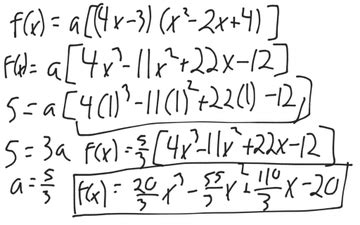 f(x) = a[(4x-3)(x²-2x+4)]
f(x) = a[4x³-11x²+22x-12]
5 = a[4(1)³-11(1)²+22(1)-12]
5 = 3a f(x) = 5/3[4x³-11x²+22x-12]
a = 5/3 f(x) = 20/3 x³ - 55/3 x² + 110/3 x - 20